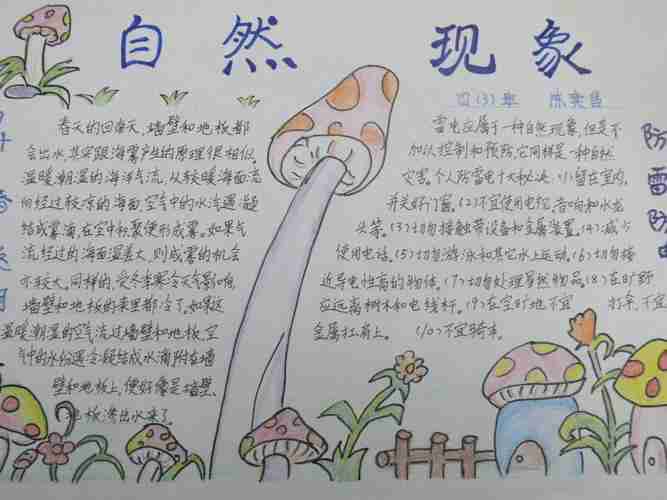 自然现象
四(3)年
春天的回南天,墙壁和地板都
会出水,其实跟海雾产生的原理很相似。
温暖潮湿的海洋气流,从较暖海面流
向经过较凉的海面,空气中的水汽遇凝
结成雾滴,在空中积聚便形成雾。如果气
流经过的海面温差大,则成雾的机会
亦较大。同样的,受冬季寒冷天气影响,
墙壁和地板的表里都冷了。如果这
温暖潮湿的空气流过墙壁和地板,空
气中的水份遇冷凝结成水滴附在墙
壁和地板上,便好像是墙壁、
地板渗出水来了。
雷电应属于一种自然现象,但是不
加以控制和预防,它同样是一种自然
灾害。个人防雷电十大秘诀:(1)留在室内,
并关好门窗。(2)不宜使用电视、音响和水龙
头等。(3)切勿接触带设备和金属装置。(4)减少
使用电话。(5)切勿游泳和其它水上运动。(6)切勿接
近导电性高的物体。(7)切勿处理易燃物品。(8)在旷野
应远离树木和电线杆。(9)在空旷地不宜打伞,不宜
金属扛肩上。(10)不宜骑车。
防雷防电